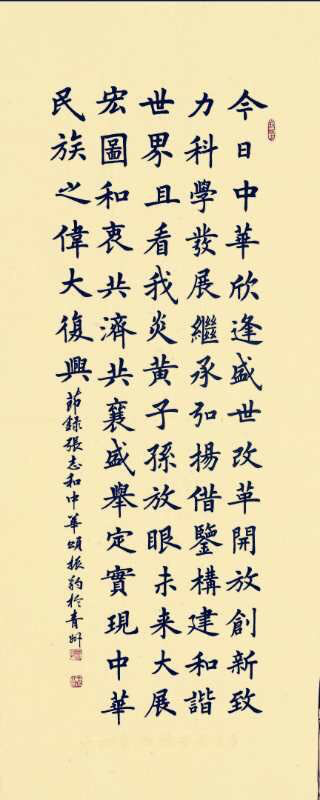 今日中華欣逢盛世改革開放創新致
力科學發展繼承弘揚借鑒構建和諧
世界且看我炎黃子孫放眼未来大展
宏圖和衷共濟共襄盛舉定實現中華
民族之偉大復興
節錄張志和中華頌振豹於青州